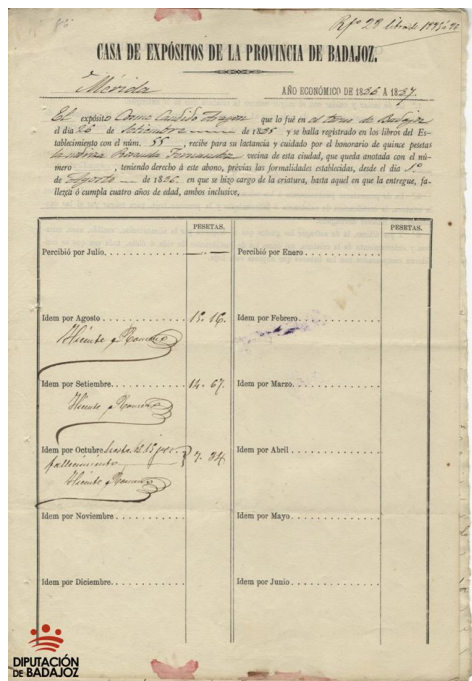 Rfº 28
CASA DE EXPÓSITOS DE LA PROVINCIA DE BADAJOZ.
Mérida
AÑO ECONÓMICO DE 1886 A 1887.
El expósito Cosme Candido que lo fué en el torno de Badajoz
el dia 26 de Setiembre de 1885 y se halla registrado en los libros del Es-
tablecimiento con el núm. 55, recibe para su lactancia y cuidado por el honorario de quince pesetas
la nodriza Fernandez vecina de esta ciudad, que queda anotada con el nú-
mero , teniendo derecho á este abono, prévias las formalidades establecidas, desde el dia 1º
de Agosto de 1886 en que se hizo cargo de la criatura, hasta aquel en que la entregue, fa-
llezca ó cumpla cuatro años de edad, ambos inclusive,
PESETAS. PESETAS.
Percibió por Julio. Percibió por Enero
Idem por Agosto 15-16. Idem por Febrero
Vicente
Idem por Setiembre 14-67 Idem por Marzo
Vicente
Idem por Octubre hasta el 15 por 7-34 Idem por Abril
fallecimiento
Vicente
Idem por Noviembre Idem por Mayo
Idem por Diciembre. Idem por Junio
DIPUTACIÓN
DE BADAJOZ